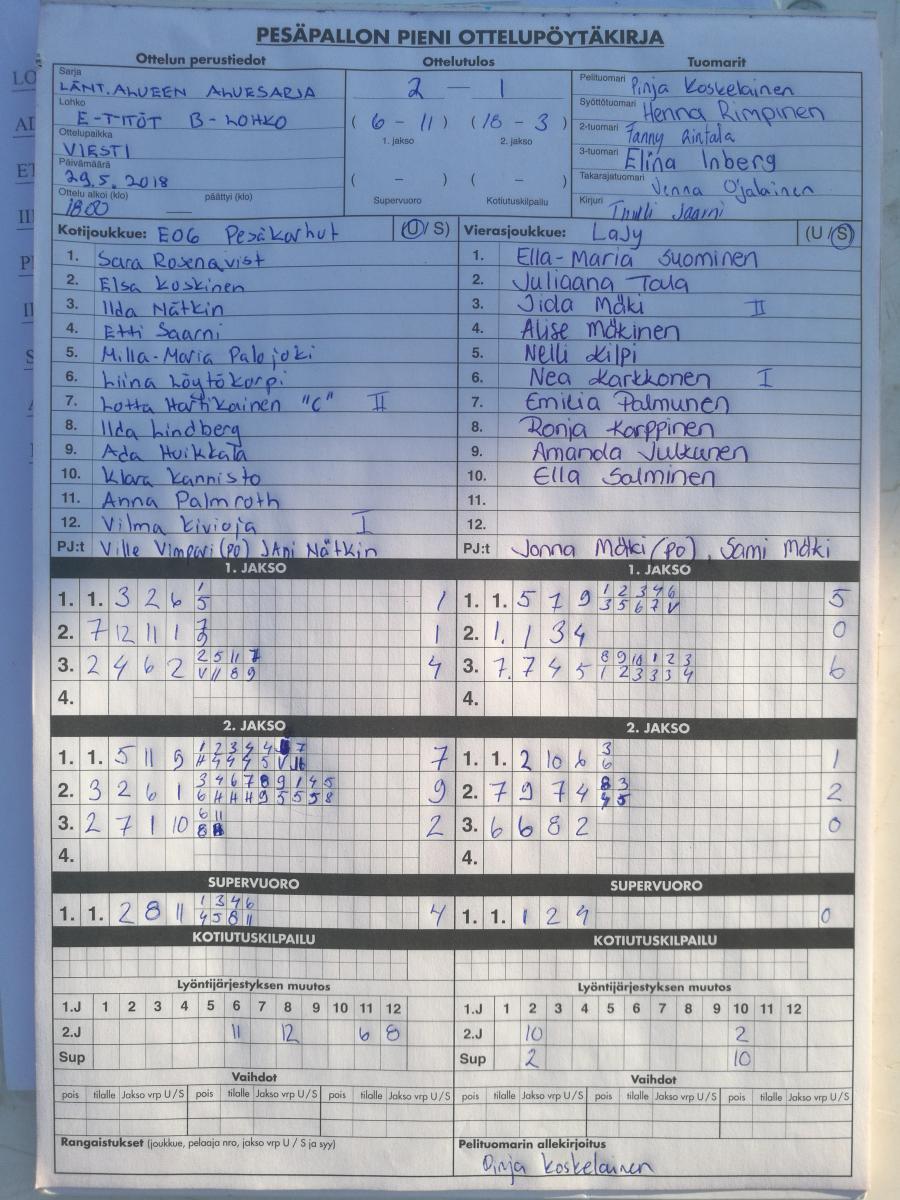 PESÄPALLON PIENI OTTELUPÖYTÄKIRJA
Ottelun perustiedot
Sarja
LÄNT. ALUEEN ALUESARJA
Lohko
E-TYTÖT B-LOHKO
Ottelupaikka
VIESTI
Päivämäärä
29.5.2018
Ottelu alkoi (klo) päättyi (klo)
18.00 —
Ottelutulos
2 — 1
( 6 - 11 ) ( 18 - 3 )
1. jakso 2. jakso
( - ) ( - )
Supervuoro Kotiutuskilpailu
Tuomarit
Pelituomari Pinja Koskelainen
Syöttötuomari Henna Rimpinen
2-tuomari Fanny Rintala
3-tuomari Elina Inberg
Takarajatuomari Jenna Ojalainen
Kirjuri Tuuli Jaarni
Kotijoukkue: E06 Pesäkarhut (U / S)
1. Sara Rosenqvist
2. Elsa Koskinen
3. Ilda Nätkin
4. Etti Saarni
5. Milla-Maria Palojoki
6. Liina Löytökorpi
7. Lotta Hartikainen "C" II
8. Ilda Lindberg
9. Ada Huikkala
10. Klara Kannisto
11. Anna Palmroth
12. Vilma Kivioja I
PJ:t Ville Vimpari (PO) JAni Nätkin
Vierasjoukkue: LaJy (U / S)
1. Ella-Maria Suominen
2. Juliaana Tala
3. Iida Mäki II
4. Alise Mäkinen
5. Nelli Kilpi
6. Nea Karkkonen I
7. Emilia Palmunen
8. Ronja Korppinen
9. Amanda Julkunen
10. Ella Salminen
11.
12.
PJ:t Jonna Mäki (po), Sami Mäki
1. JAKSO
1. 1. 3 2 6 1 1
5
2. 7 12 11 1 7 1
9
3. 2 4 6 2 2 5 11 7 4
V 11 8 9
4.
1. JAKSO
1. 1. 5 7 9 1 2 3 4 6 5
3 5 6 7 V
2. 1. 1 3 4 0
3. 7. 7 4 5 8 9 10 1 2 3 6
1 2 3 3 3 4
4.
2. JAKSO
1. 1. 5 11 9 1 2 3 4 4 7 7
2. 3 2 6 1 3 4 6 7 8 9 1 4 5 9
6 H H H 9 5 5 5 8
3. 2 7 1 10 6 11 2
8
4.
2. JAKSO
1. 1. 2 10 6 3 1
6
2. 7 9 7 4 8 3 2
4 5
3. 6 6 8 2 0
4.
SUPERVUORO
1. 1. 2 8 11 1 3 4 6 4
4 5 8 11
SUPERVUORO
1. 1. 1 2 4 0
KOTIUTUSKILPAILU
KOTIUTUSKILPAILU
Lyöntijärjestyksen muutos
1.J 1 2 3 4 5 6 7 8 9 10 11 12
2.J 11 12 6 8
Sup
Lyöntijärjestyksen muutos
1.J 1 2 3 4 5 6 7 8 9 10 11 12
2.J 10 2
Sup 2 10
Vaihdot
pois tilalle Jakso vrp U / S pois tilalle Jakso vrp U / S pois tilalle Jakso vrp U / S
Vaihdot
pois tilalle Jakso vrp U / S pois tilalle Jakso vrp U / S pois tilalle Jakso vrp U / S
Rangaistukset (joukkue, pelaaja nro, jakso vrp U / S ja syy)
Pelituomarin allekirjoitus
Pinja Koskelainen